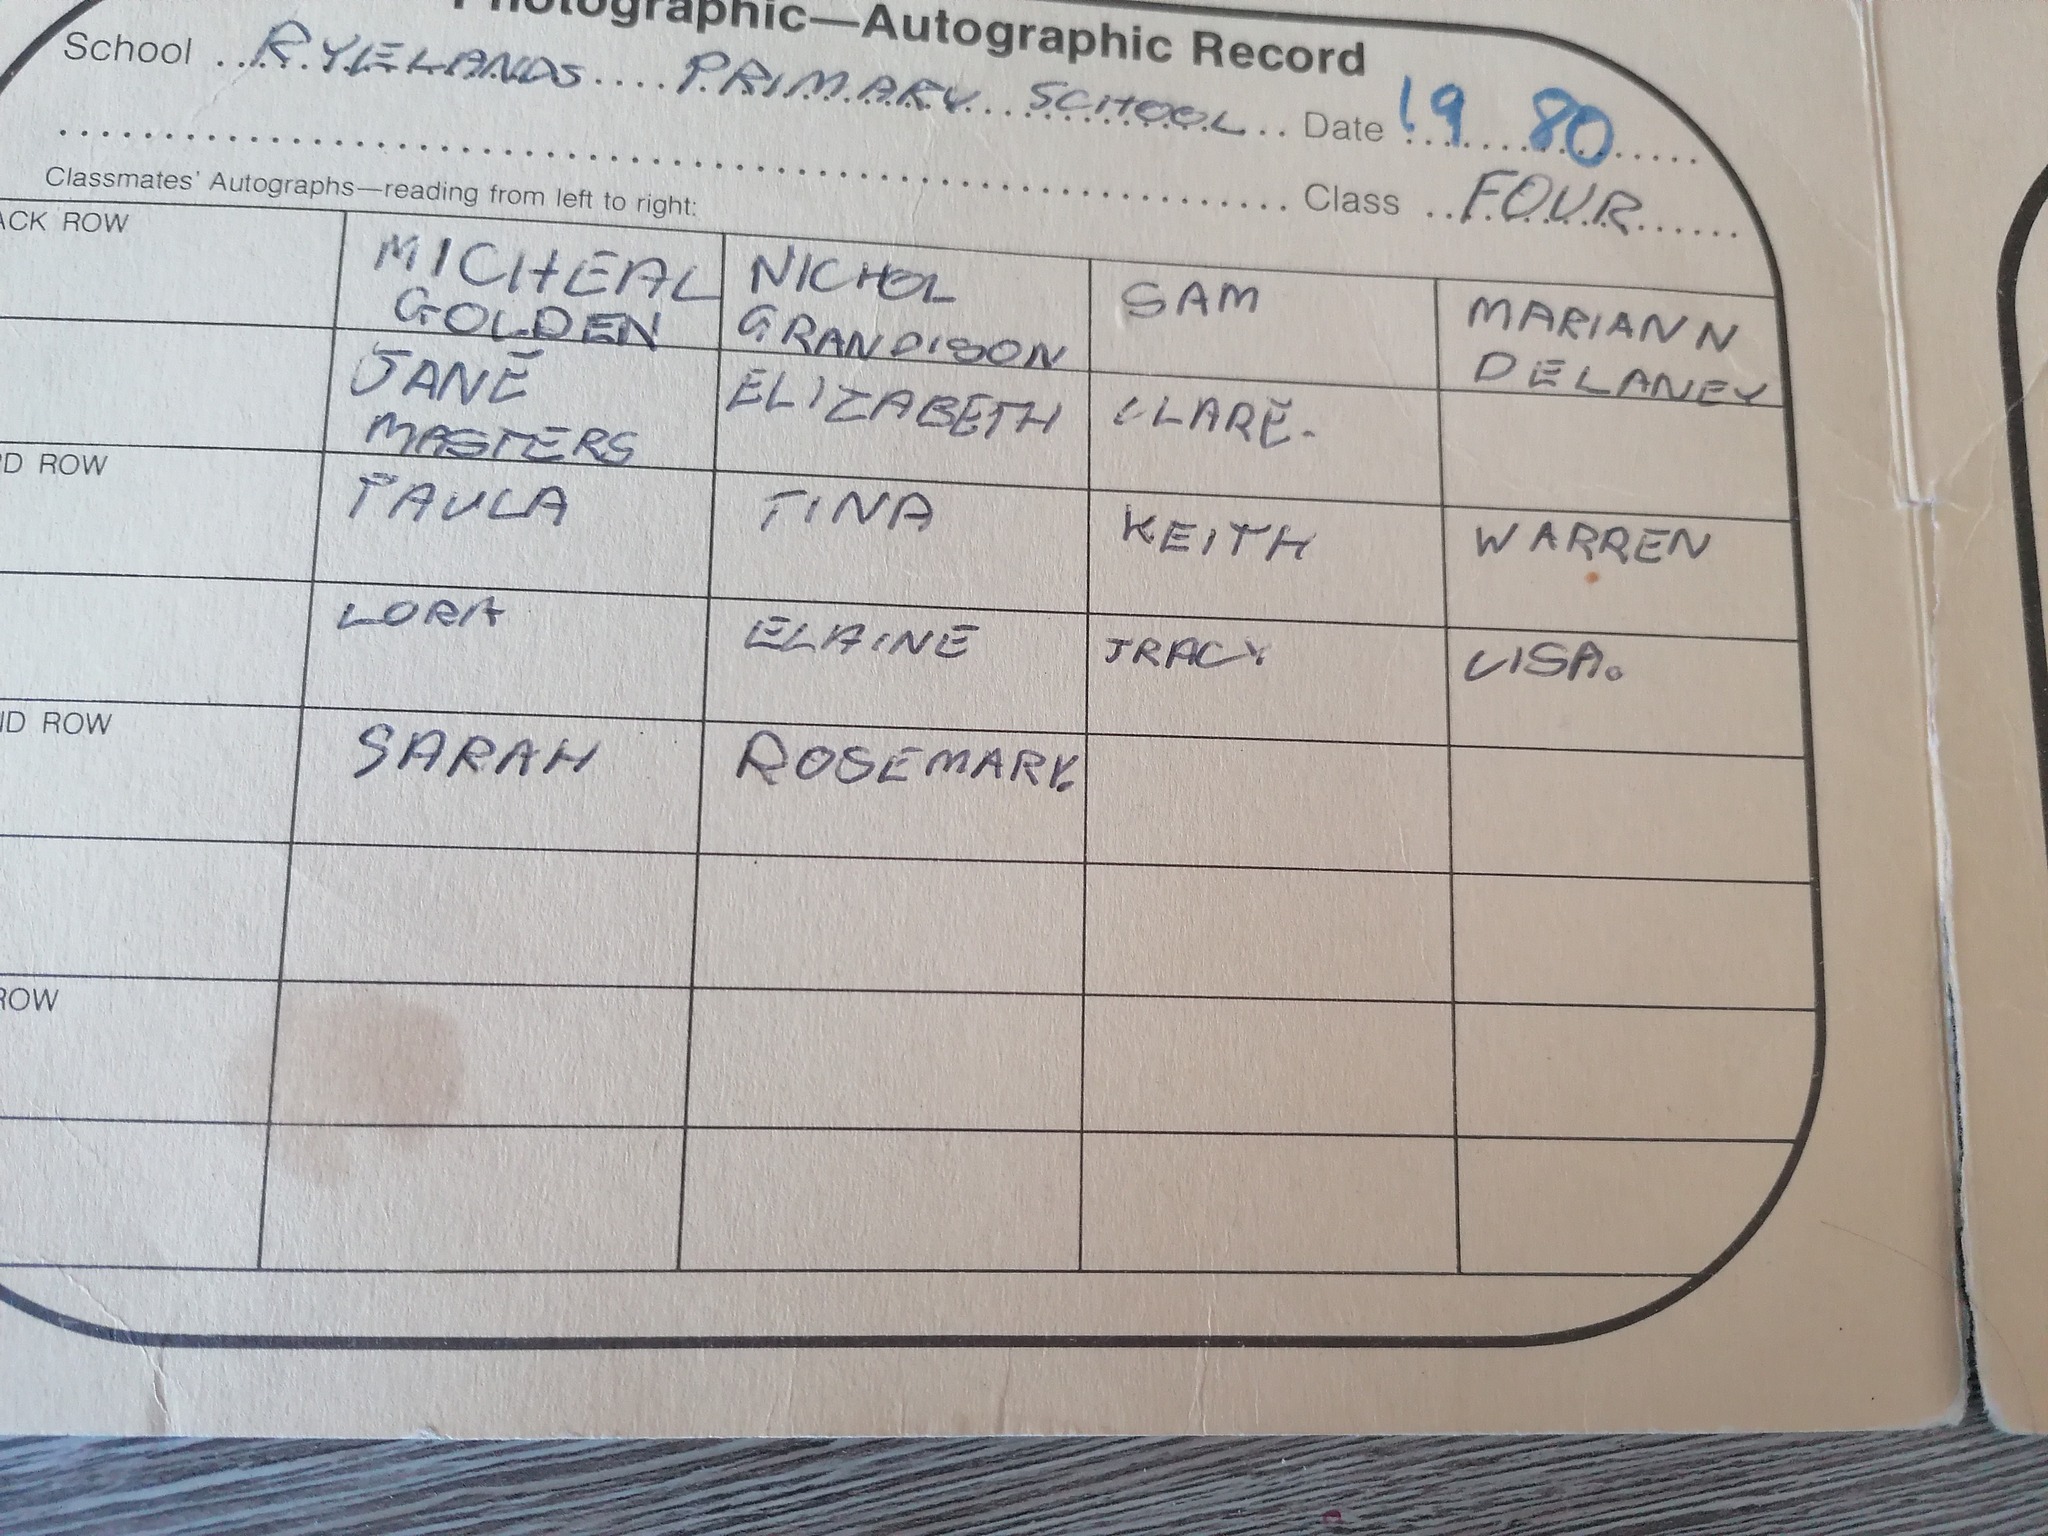 Photographic—Autographic Record
School RYLELANDS PRIMARY SCHOOL Date 19 80
Class FOUR
Classmates' Autographs—reading from left to right:
ACK ROW
MICHEAL GOLDEN
NICHOL GRANDISON
SAM
MARIANN DELANEY
JANE MASTERS
ELIZABETH
CLARE.
RD ROW
PAULA
TINA
KEITH
WARREN
LORA
ELAINE
TRACY
LISA.
ND ROW
SARAH
ROSEMARY.
ROW